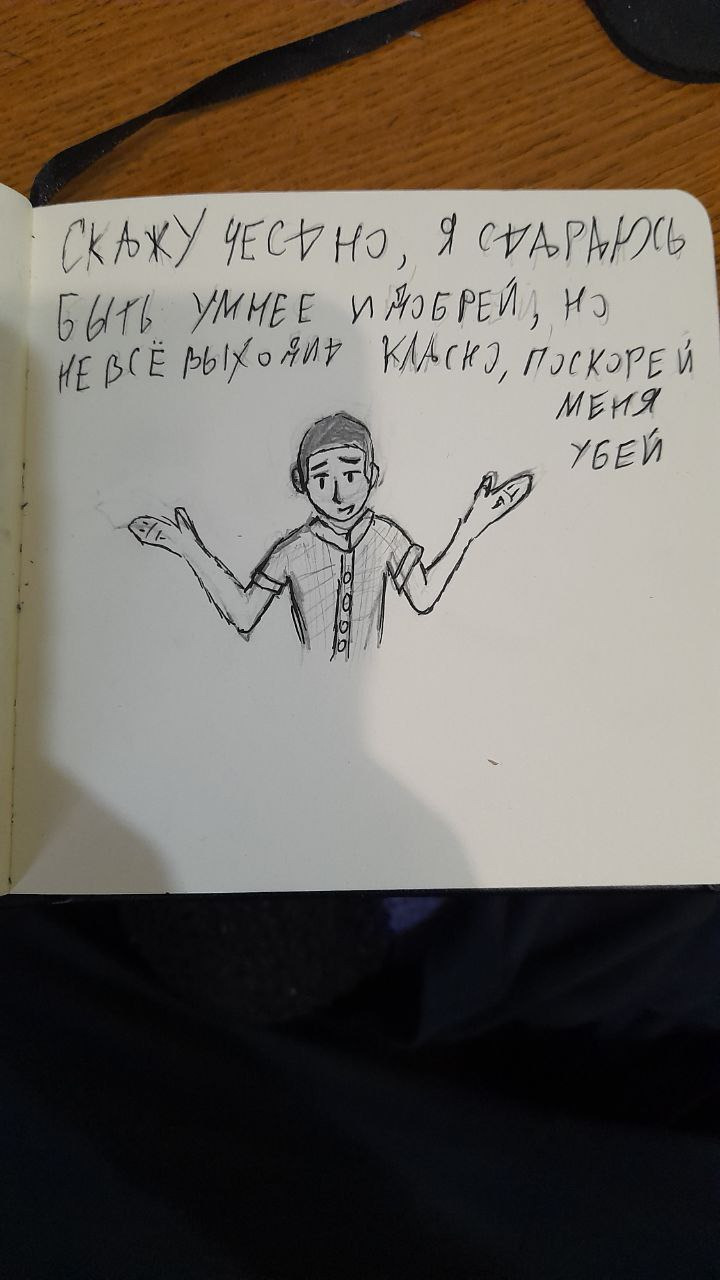 СКАЖУ ЧЕСТНО, Я СТАРАЮСЬ
БЫТЬ УМНЕЕ И ДОБРЕЙ, НО
НЕ ВСЁ ВЫХОДИТ КЛАСНО, ПОСКОРЕЙ
МЕНЯ
УБЕЙ